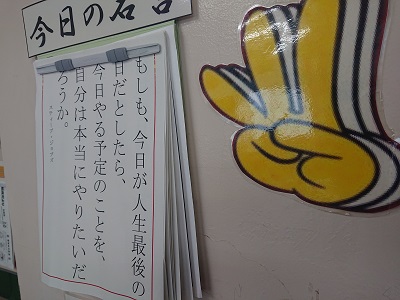 今日の名言
もしも、今日が人生最後の
日だとしたら、
今日やる予定のことを、
自分は本当にやりたいだ
ろうか。
スティーブ・ジョブズ